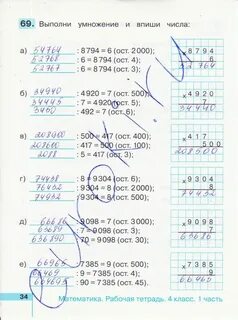 69. Выполни умножение и впиши числа:
а) 54764 : 8794 = 6 (ост. 2000);
52768 : 6 = 8794 (ост. 4);
52767 : 6 = 8794 (ост. 3);
× 8794
6
52764
б) 34940 : 4920 = 7 (ост. 500);
34445 : 7 = 4920 (ост. 5);
3450 : 492 = 7 (ост. 6);
× 4920
7
в) 208600 : 500 = 417 (ост. 100);
208600 : 417 = 500 (ост. 100);
2088 : 5 = 417 (ост. 3);
× 417
500
208500
г) 74438 : 8 = 9304 (ост. 6);
76432 : 9304 = 8 (ост. 2000);
: 8 = 9304 (ост. 3);
× 9304
8
74432
д) 66686 : 9098 = 7 (ост. 3000);
63689 : 7 = 9098 (ост. 3);
636890 : 70 = 9098 (ост. 30);
× 9098
7
63686
е) 66965 : 7385 = 9 (ост. 500);
66469 : 9 = 7385 (ост. 4);
664695 : 90 = 7385 (ост. 45).
× 7385
9
34
Математика. Рабочая тетрадь. 4 класс. 1 часть